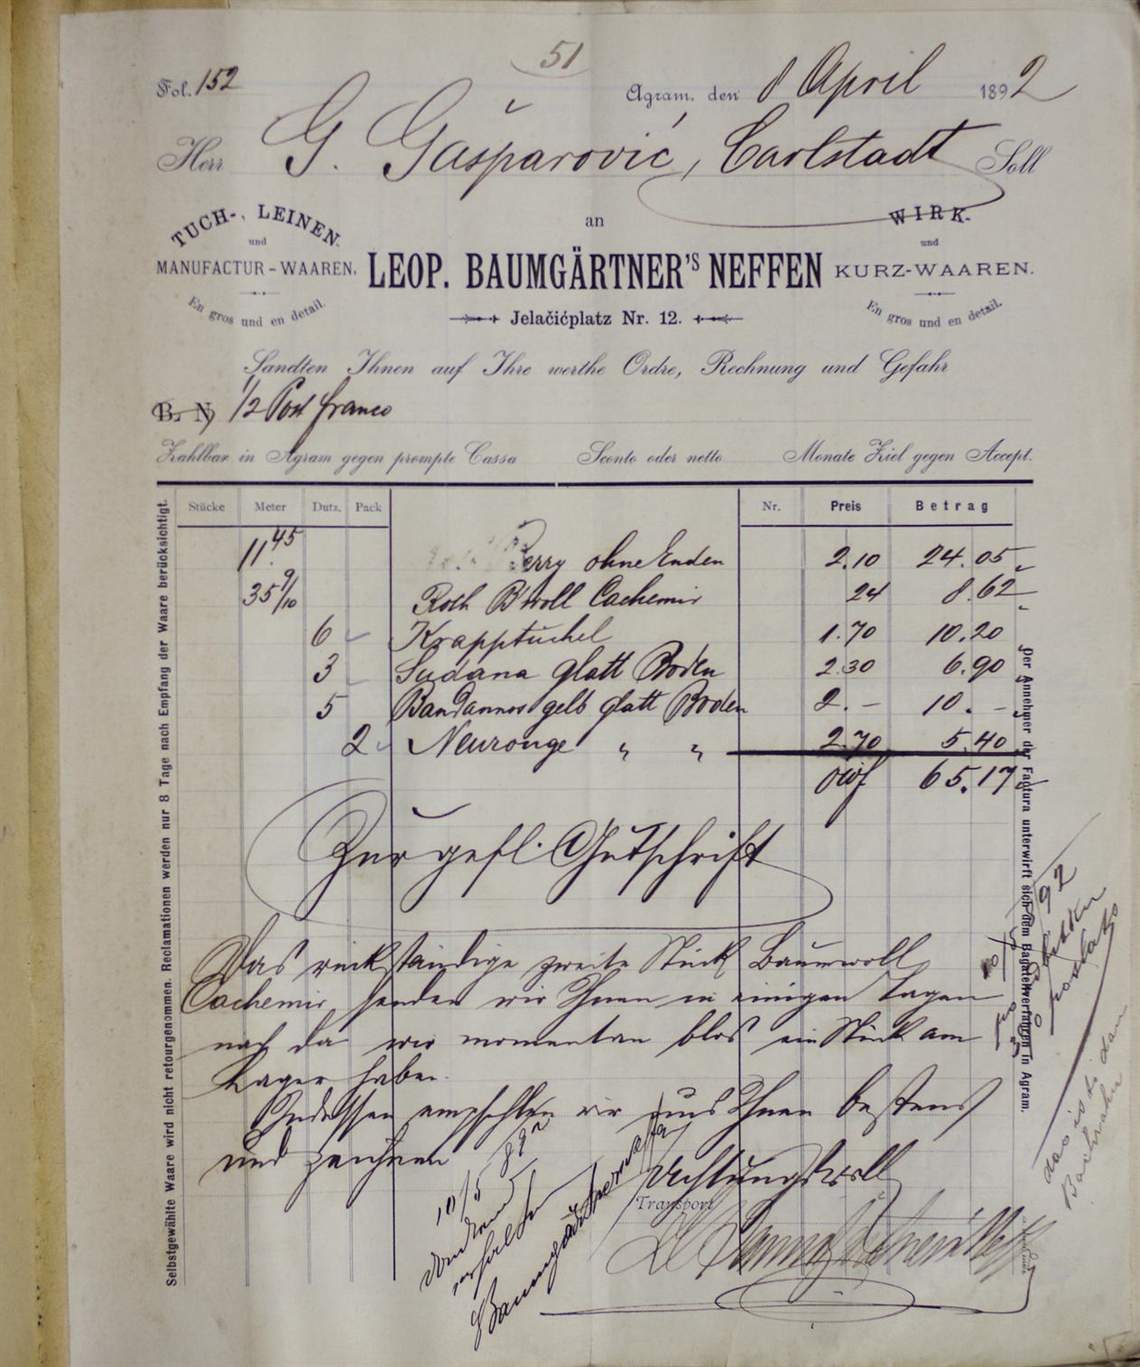 51
Fol. 152
Agram, den 8 April 1892
Herr G. Gašparović, Carlstadt Soll
an
TUCH-, LEINEN
und
MANUFACTUR-WAAREN.
En gros und en detail.
LEOP. BAUMGÄRTNER'S NEFFEN
Jelačićplatz Nr. 12.
WIRK-
und
KURZ-WAAREN.
En gros und en detail.
Sandten Ihnen auf Ihre werthe Ordre, Rechnung und Gefahr
B. N. 1/2 Post franco
Zahlbar in Agram gegen prompte Cassa Sconto oder netto Monate Ziel gegen Accept.
Stücke Meter Dutz. Pack Nr. Preis Betrag
11.45 Berry ohne Enden 2.10 24.05
35 9/10 Roth B'woll Cachemir 24 8.62
6 Krapptüchel 1.70 10.20
3 Sudana glatt Boden 2.30 6.90
5 Bandannos gelb glatt Boden 2.– 10.–
2 Neurouge " " 2.70 5.40
öwf 65.17
Zur gefl. Gutschrift
Das rückständige zweite Stück Baumwoll
Cachemir senden wir Ihnen in einigen Tagen
nach da wir momentan blos ein Stück am
Lager haben.
Indessen empfehlen wir uns Ihnen bestens
und zeichnen
Achtungsvoll
Transport
10/5 892
Baumgärtner
Selbstgewählte Waare wird nicht retourgenommen. Reclamationen werden nur 8 Tage nach Empfang der Waare berücksichtigt.
Der Annehmer der Factura unterwirft sich dem Bagatellverfahren in Agram.